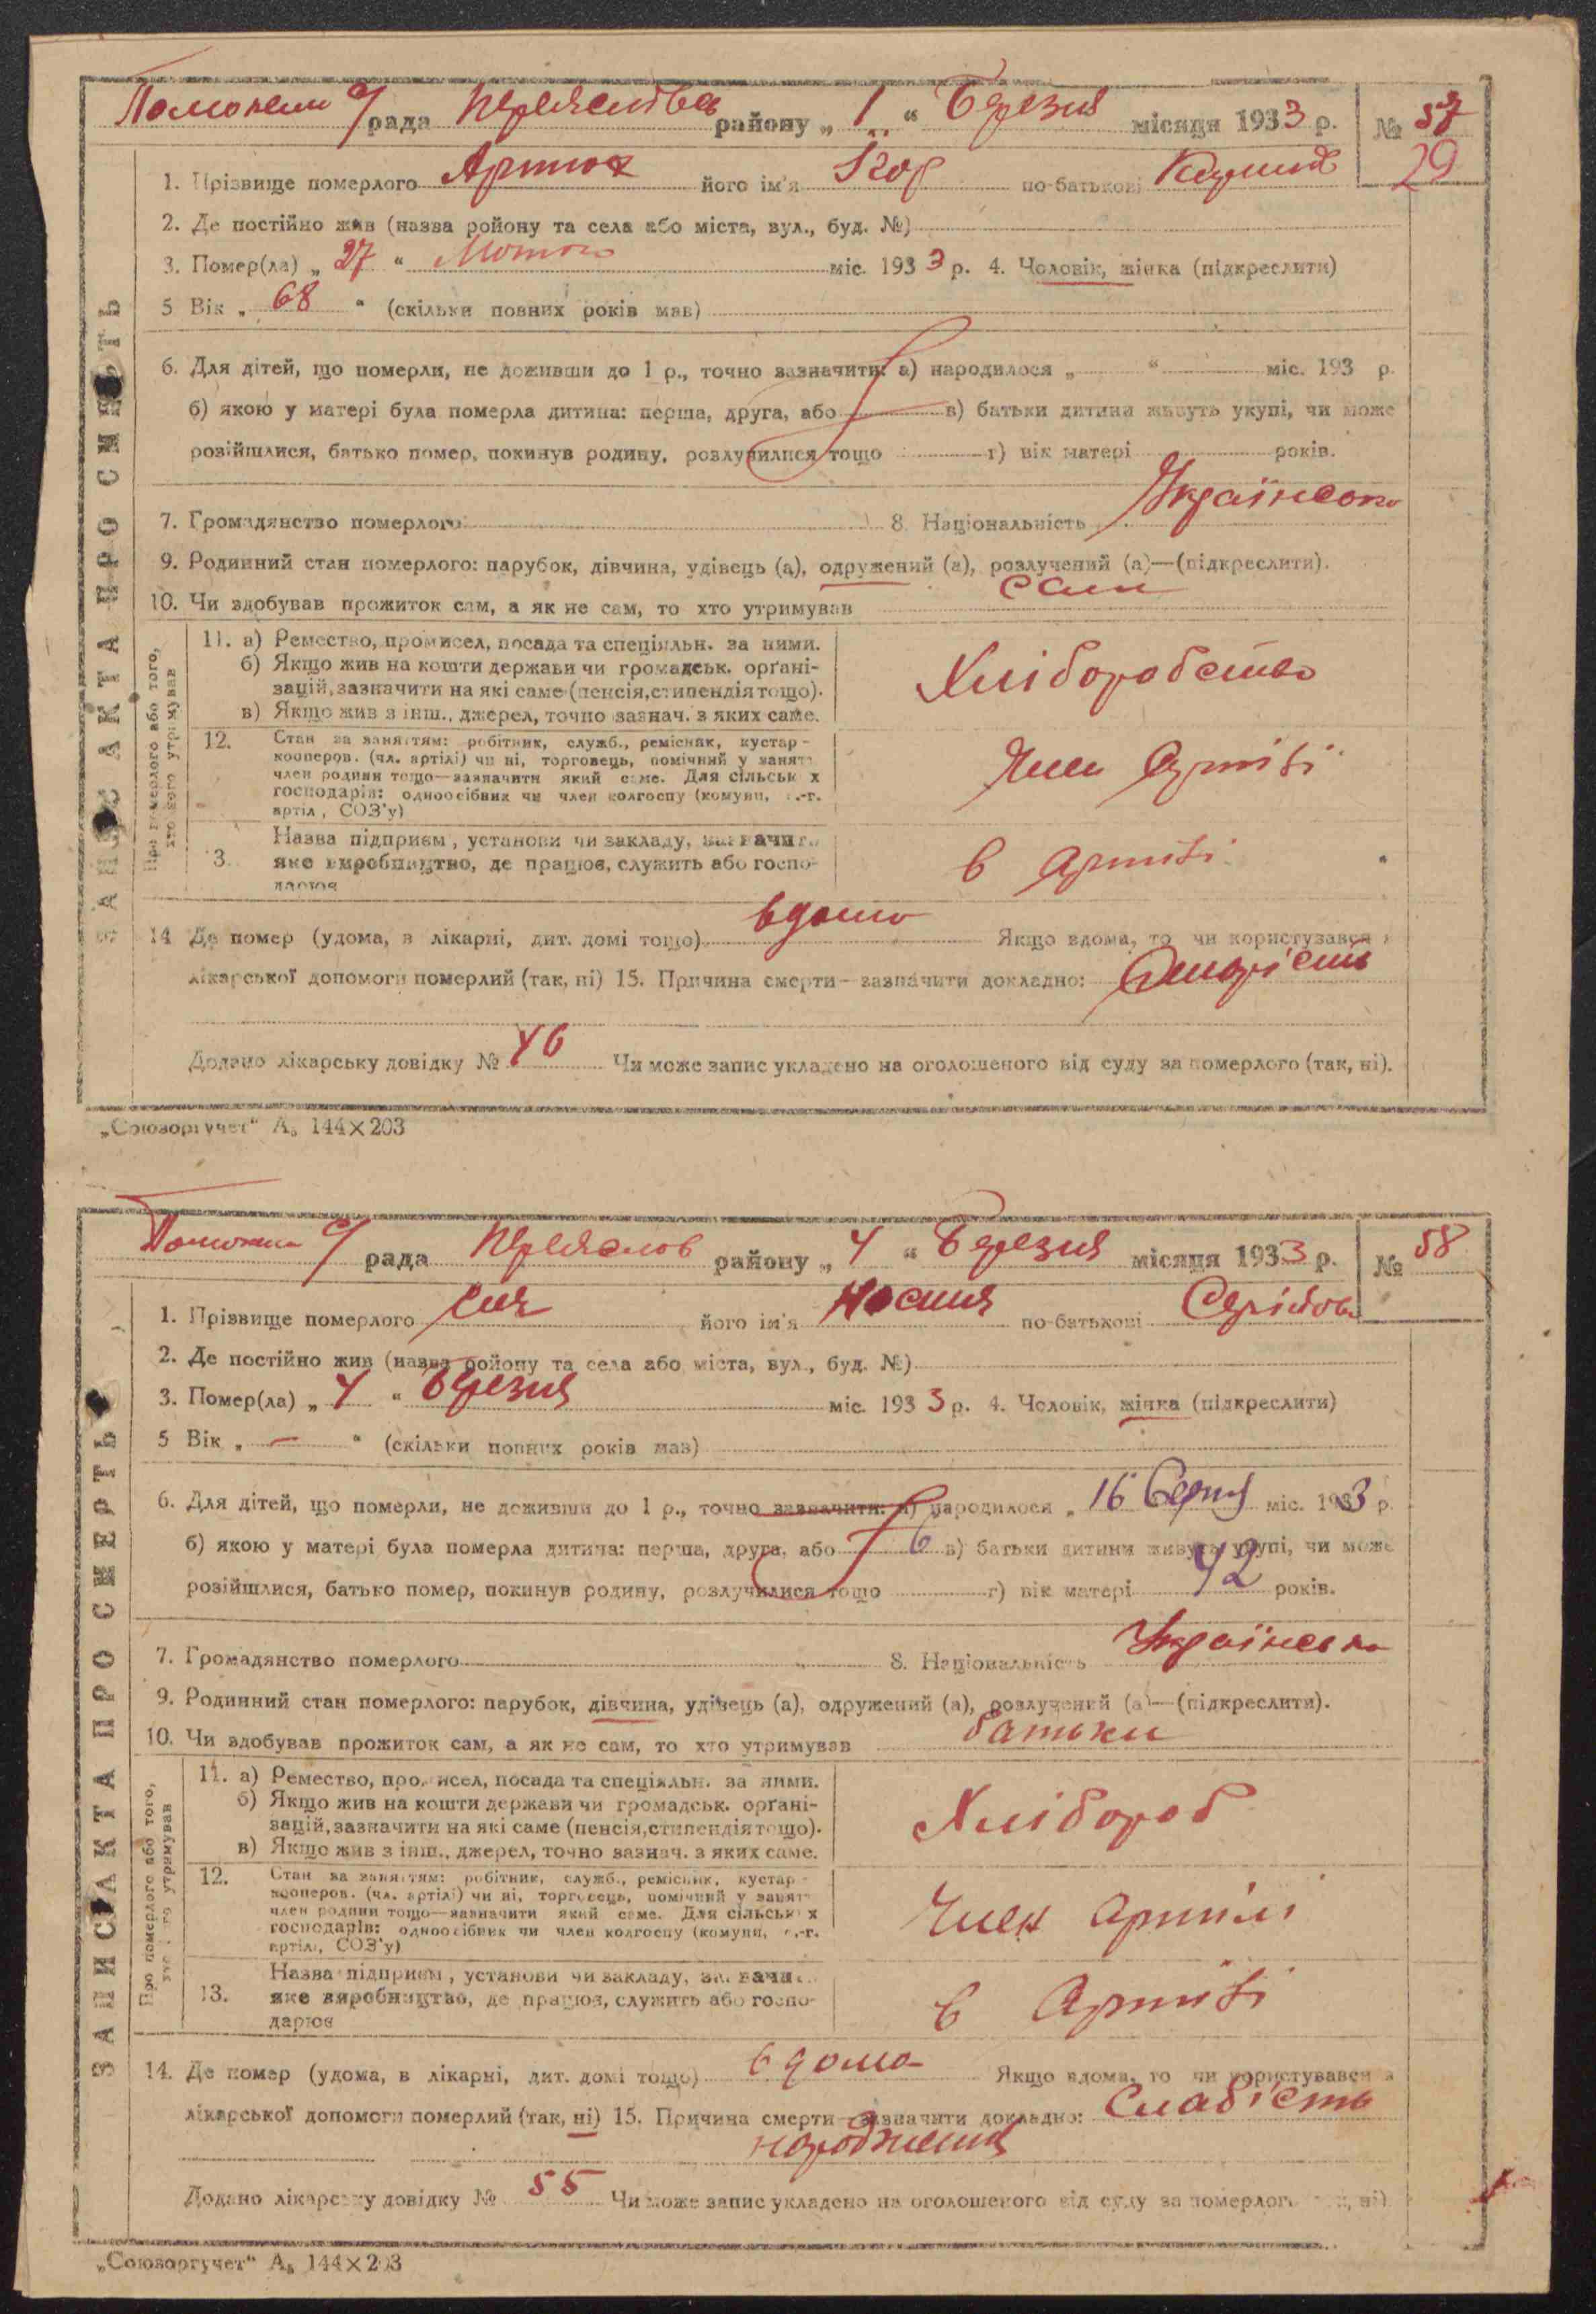 Помоклии с/рада Переяславсь району „ 1 “ Березня місяця 1933 р. № 57
29
1. Прізвище померлого Артюх його ім'я Ігор по-батькові
2. Де постійно жив (назва ройону та села або міста, вул., буд. №)
3. Помер(ла) „ 27 “ Лютого міс. 1933 р. 4. Чоловік, жінка (підкреслити)
5 Вік „ 68 “ (скільки повних років мав)
6. Для дітей, що померли, не доживши до 1 р., точно зазначити: а) народилося „ “ міс. 193 р.
б) якою у матері була померла дитина: перша, друга, або в) батьки дитини живуть укупі, чи може
розійшлися, батько помер, покинув родину, розлучилися тощо г) вік матері років.
7. Громадянство померлого 8. Національність Українсько
9. Родинний стан померлого: парубок, дівчина, удівець (а), одружений (а), розлучений (а)—(підкреслити).
10. Чи здобував прожиток сам, а як не сам, то хто утримував сам
ЗАПИС АКТА ПРО СМЕРТЬ
Про померлого або того, хто його утримував
11. а) Ремество, промисел, посада та спеціяльн. за ними.
б) Якщо жив на кошти держави чи громадськ. орґані-
зацій, зазначити на які саме (пенсія, стипендія тощо).
в) Якщо жив з інш., джерел, точно зазнач. з яких саме.
Хліборобство
12. Стан за заняттям: робітник, служб., ремісник, кустар-
кооперов. (чл. артілі) чи ні, торговець, помічний у занятт
член родини тощо—зазначити який саме. Для сільськ х
господарів: одноосібник чи член колгоспу (комуни, с.-г.
артіл, СОЗ'у)
Член Артілі
3. Назва підприєм, установи чи закладу, зазначит
яке виробництво, де працює, служить або госпо-
дарює
в Артілі
14 Де помер (удома, в лікарні, дит. домі тощо) вдома Якщо вдома, то чи користувався з
лікарської допомоги померлий (так, ні) 15. Причина смерти—зазначити докладно: Старість
Додано лікарську довідку № 46 Чи може запис укладено на оголошеного від суду за померлого (так, ні).
„Союзоргучет“ А₅ 144×203
с/рада Переяслов району „ 4 “ Березня місяця 1933 р. № 58
1. Прізвище померлого його ім'я по-батькові
2. Де постійно жив (назва ройону та села або міста, вул., буд. №)
3. Помер(ла) „ 4 “ Березня міс. 1933 р. 4. Чоловік, жінка (підкреслити)
5 Вік „ — “ (скільки повних років мав)
6. Для дітей, що померли, не доживши до 1 р., точно зазначити: а) народилося „ 16 міс. 1933 р.
б) якою у матері була померла дитина: перша, друга, або 6 в) батьки дитини живуть укупі, чи може
розійшлися, батько помер, покинув родину, розлучилися тощо г) вік матері 42 років.
7. Громадянство померлого 8. Національність Українсько
9. Родинний стан померлого: парубок, дівчина, удівець (а), одружений (а), розлучений (а)—(підкреслити).
10. Чи здобував прожиток сам, а як не сам, то хто утримував батьки
ЗАПИС АКТА ПРО СМЕРТЬ
Про померлого або того, хто його утримував
11. а) Ремество, промисел, посада та спеціяльн. за ними.
б) Якщо жив на кошти держави чи громадськ. орґані-
зацій, зазначити на які саме (пенсія, стипендія тощо).
в) Якщо жив з інш., джерел, точно зазнач. з яких саме.
Хлібороб
12. Стан за заняттям: робітник, служб., ремісник, кустар-
кооперов. (чл. артілі) чи ні, торговець, помічний у занятт
член родини тощо—зазначити який саме. Для сільськ х
господарів: одноосібник чи член колгоспу (комуни, с.-г.
артіл, СОЗ'у)
Член Артілі
13. Назва підприєм, установи чи закладу, зазначит
яке виробництво, де працює, служить або госпо-
дарює
в Артілі
14. Де помер (удома, в лікарні, дит. домі тощо) вдома Якщо вдома, то чи користувався з
лікарської допомоги померлий (так, ні) 15. Причина смерти—зазначити докладно: Слабість
народження
Додано лікарську довідку № 55 Чи може запис укладено на оголошеного від суду за померлого (так, ні)
„Союзоргучет“ А₅ 144×203